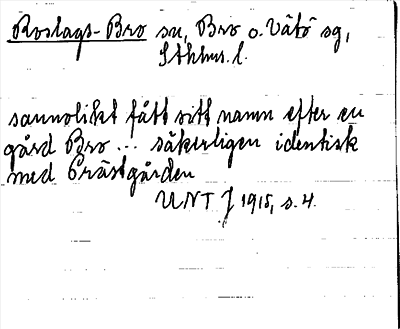 Roslags-Bro sn, Bro o. Vätö sg,
Sthlms. l.
sannolikt fått sitt namn efter en
gård Bro ... säkerligen identisk
med Prästgården
UNT J 1915, s. 4.